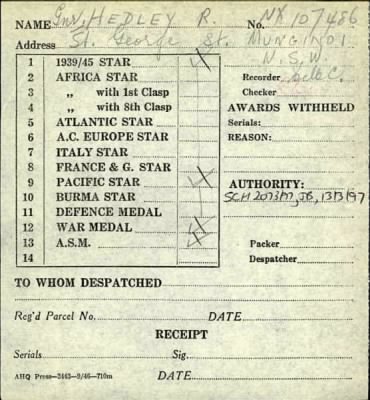 NAME Gnr. HEDLEY R. No. NX 107486
Address St. George St. MUNGINDI
N.S.W.
1 1939/45 STAR 4
2 AFRICA STAR
3 „ with 1st Clasp
4 „ with 8th Clasp
5 ATLANTIC STAR
6 A.C. EUROPE STAR
7 ITALY STAR
8 FRANCE & G. STAR
9 PACIFIC STAR 4
10 BURMA STAR
11 DEFENCE MEDAL
12 WAR MEDAL 4
13 A.S.M. 4
14
Recorder
Checker
AWARDS WITHHELD
Serials:
REASON:
AUTHORITY:
Packer
Despatcher
TO WHOM DESPATCHED
Reg'd Parcel No. DATE
RECEIPT
Serials Sig.
AHQ Press—3443—9/46—710m DATE